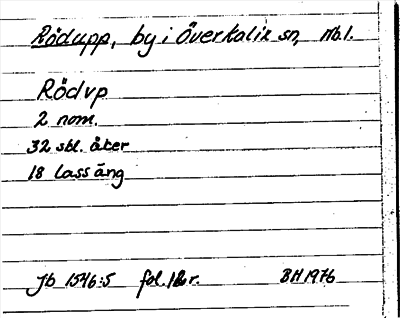 Rödupp, by i Överkalix sn, Nb.l.
Rödvp
2 nom.
32 sbl. åker
18 lass äng
Jb 1546:5 fol. r. BH 1976